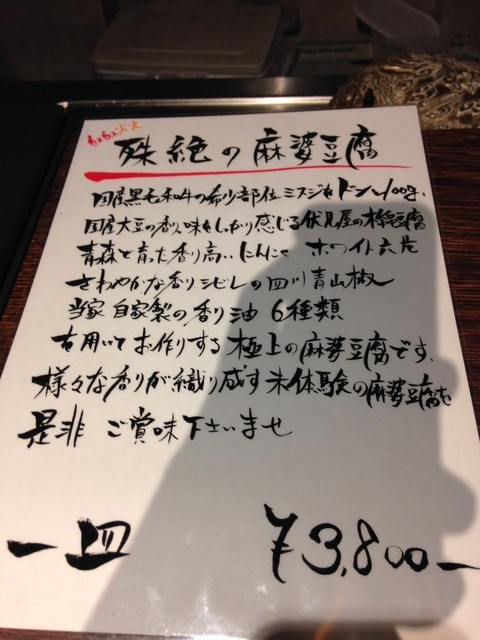 殊絶の麻婆豆腐
国産黒毛和牛の希少部位ミスジをドンと100g、
国産大豆の香り味をしっかり感じる伏見屋の極豆腐
青森で育った香り高いにんにく ホワイト六片
さわやかな香りシビレの四川青山椒
当家 自家製の香り油 6種類
を用いてお作りする極上の麻婆豆腐です。
様々な香りが織り成す未体験の麻婆豆腐を
是非 ご賞味下さいませ
一皿 ¥3,800-